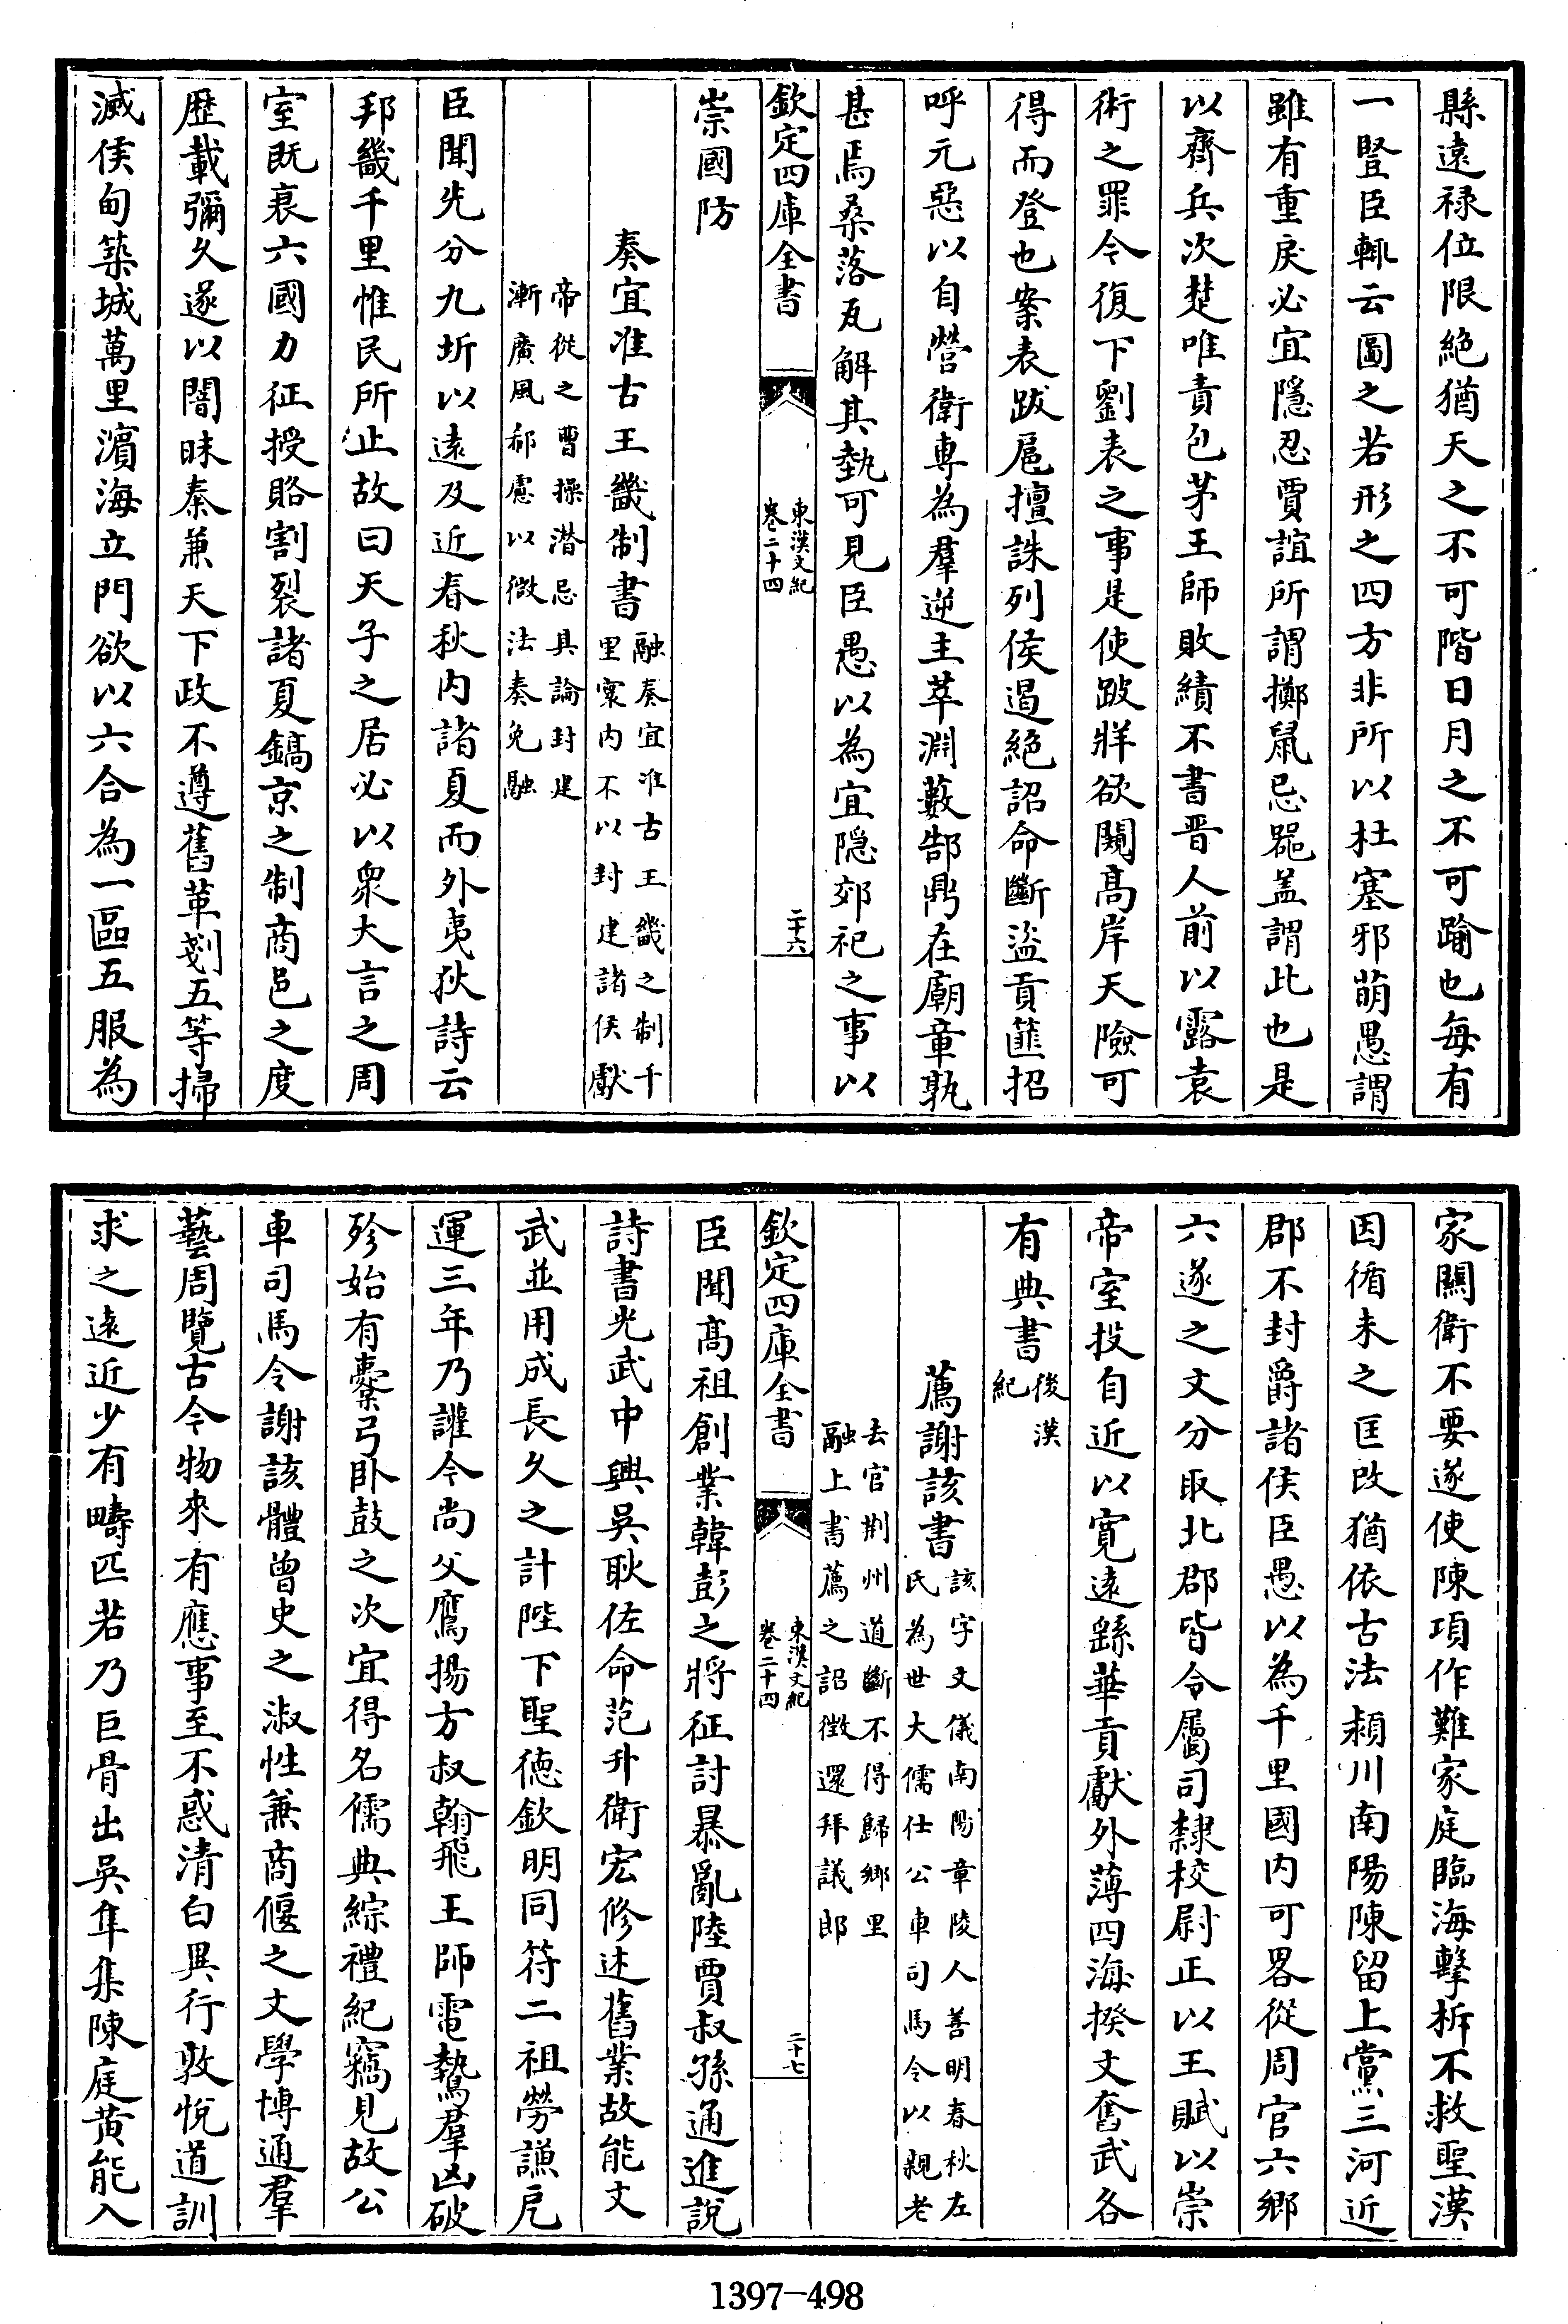 縣遠禄位限絶猶天之不可階日月之不可踰也每有
一豎臣輒云圖之若形之四方非所以杜塞邪萌愚謂
雖有重戾必宜隱忍賈誼所謂擲鼠忌器盖謂此也是
以齊兵次楚唯責包茅王師敗績不書晋人前以露袁
術之罪今復下劉表之事是使跛牂欲闚髙岸天險可
得而登也案表跋扈擅誅列侯遏絶詔命斷盜貢篚招
呼元惡以自營衛專為羣逆主萃淵藪郜鼎在廟章孰
甚焉桑落瓦解其埶可見臣愚以為宜隠郊祀之事以
欽定四庫全書
東漢文紀
卷二十四
二十六
崇國防
奏宜准古王畿制書
融奏宜准古王畿之制千
里寰内不以封建諸侯獻
帝從之曹操潜忌具論封建
漸廣風郗慮以微法奏免融
臣聞先分九圻以遠及近春秋内諸夏而外夷狄詩云
邦畿千里惟民所止故曰天子之居必以衆大言之周
室既衰六國力征授賂割裂諸夏鎬京之制商邑之度
歴載彌久遂以闇昧秦兼天下政不遵舊革剗五等掃
滅侯甸築城萬里濵海立門欲以六合為一區五服為
家關衛不要遂使陳項作難家庭臨海擊柝不救聖漢
因循未之匡改猶依古法潁川南陽陳留上黨三河近
郡不封爵諸侯臣愚以為千里國内可畧從周官六鄉
六遂之文分取北郡皆令屬司隸校尉正以王賦以崇
帝室投自近以寛遠繇華貢獻外薄四海揆文奮武各
有典書
後漢
紀
薦謝該書
該字文儀南陽章陵人善明春秋左
氏為世大儒仕公車司馬令以親老
去官荆州道斷不得歸鄉里
融上書薦之詔徴還拜議郎
欽定四庫全書
東漢文紀
卷二十四
二十七
臣聞髙祖創業韓彭之將征討暴亂陸賈叔孫通進說
詩書光武中興吳耿佐命范升衛宏修述舊業故能文
武並用成長久之計陛下聖德欽明同符二祖勞謙戹
運三年乃讙今尚父鷹揚方叔翰飛王師電鷙羣凶破
殄始有櫜弓卧鼓之次宜得名儒典綜禮紀竊見故公
車司馬令謝該體曾史之淑性兼商偃之文學博通羣
藝周覽古今物來有應事至不惑清白異行敦悅道訓
求之遠近少有疇匹若乃巨骨出吳隼集陳庭黄能入
1397-498